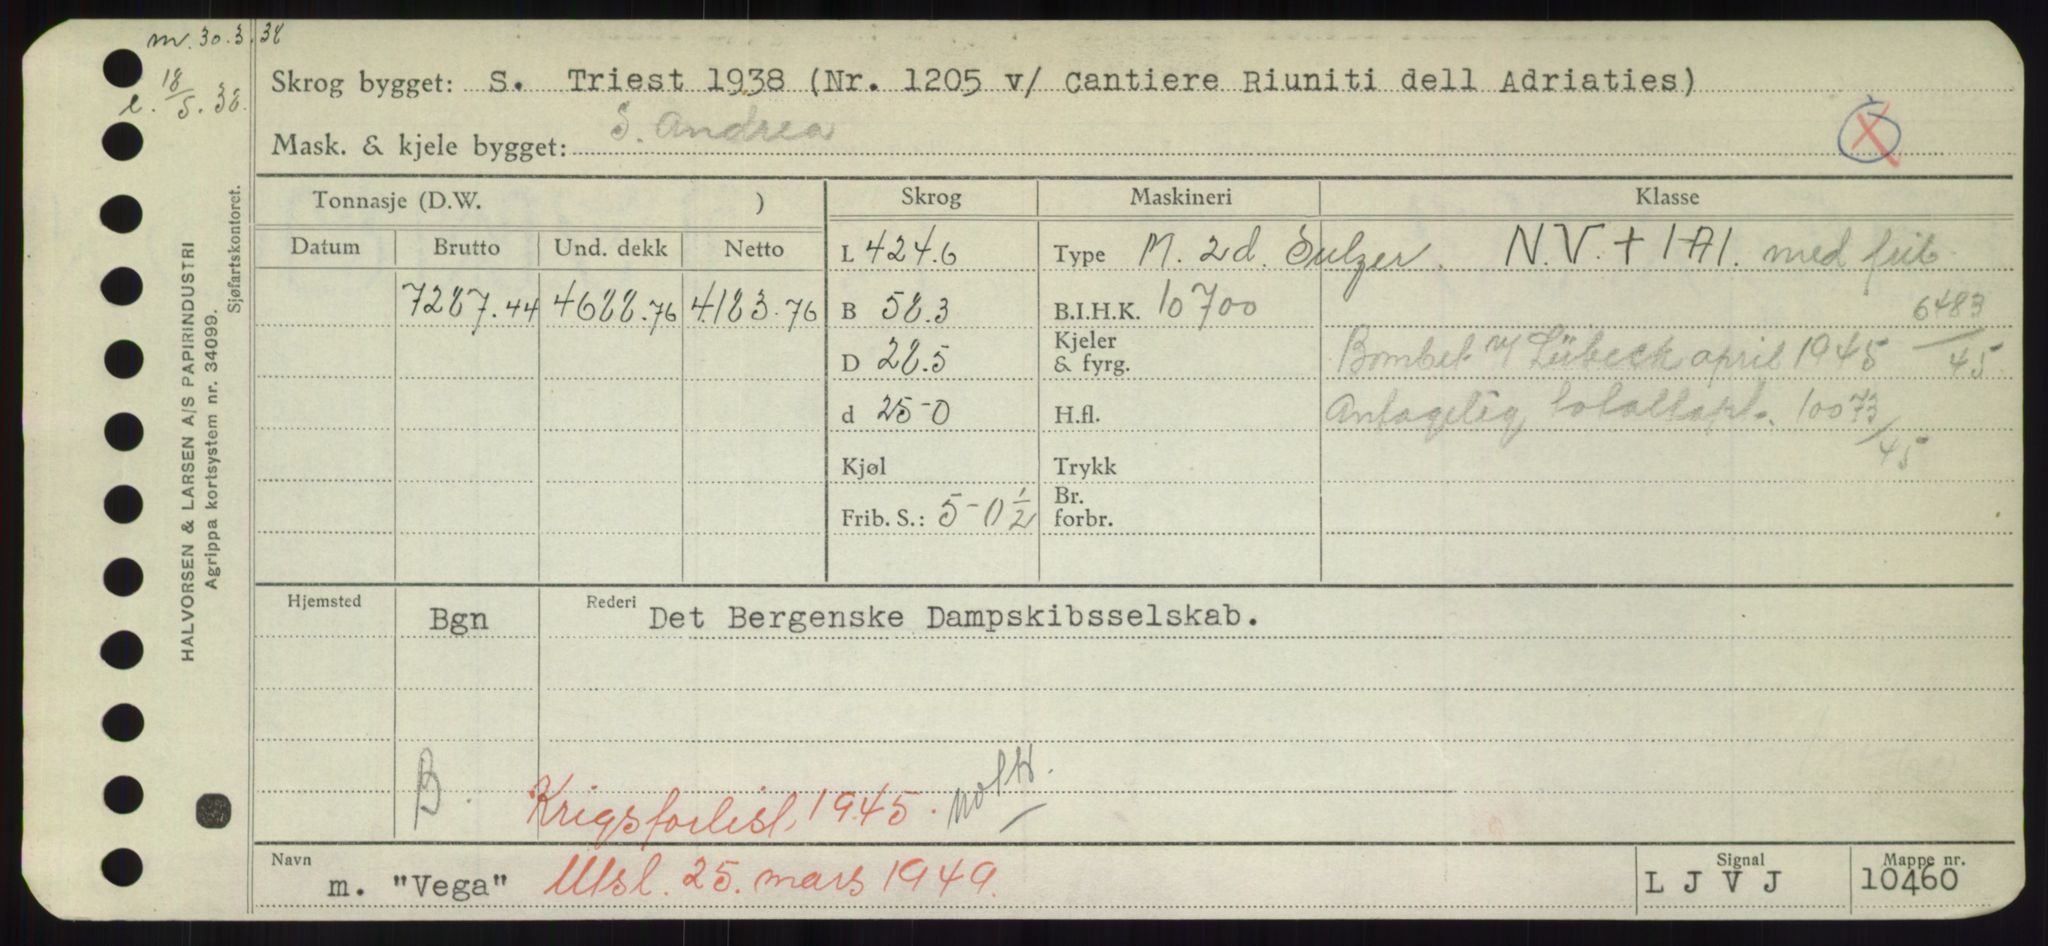 m. 30.3.38
l. 18/5.38.
Skrog bygget: S. Triest 1938 (Nr. 1205 v/ Cantiere Riuniti dell Adriaties)
S. Andrea
Mask. & kjele bygget:
Tonnasje (D.W. ) Skrog Maskineri Klasse
Datum Brutto Und. dekk Netto
L 424.6 Type M. 2d. Sulzer. N.V. + 1A1. med frib.
7287.44 4688.76 4183.76 B 58.3 B.I.H.K. 10700
6483/45
D 28.5 Kjeler & fyrg. Bombet v/ Lübeck april 1945
d 25-0 H.fl. Antagelig totaltapt. 10073/45
Kjøl Trykk
Frib. S.: 5-0 1/2 Br. forbr.
Hjemsted Bgn Rederi Det Bergenske Dampskibsselskab.
B. Krigsforlist, 1945.
Navn m. "Vega" Utsl. 25. mars 1949. Signal L J V J Mappe nr. 10460
HALVORSEN & LARSEN A/S PAPIRINDUSTRI
Agrippa kortsystem nr. 34099.
Sjøfartskontoret.